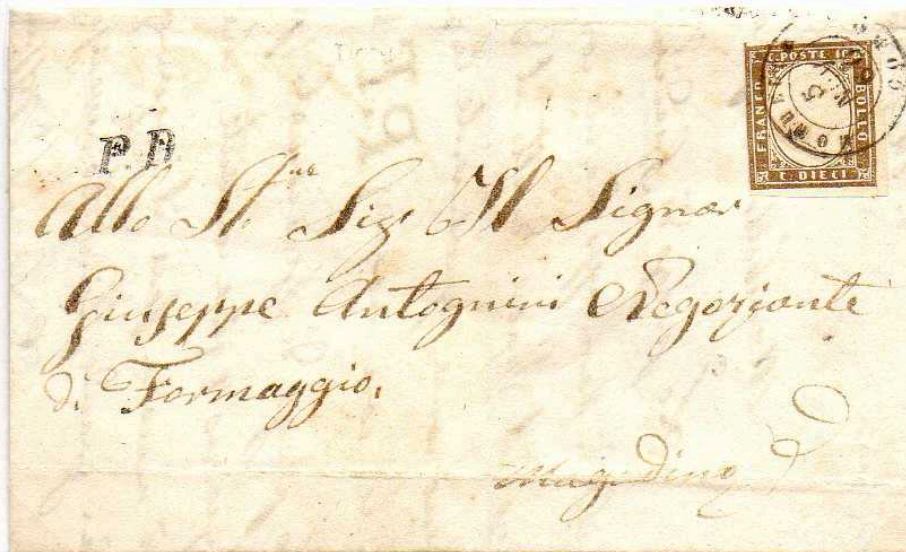 C. POSTE 10
FRANCO
BOLLO
C. DIECI
P.D.
Allo St.
Sig. Il Signor
Giuseppe Antognini Negoziante
di Formaggio.
Magadino